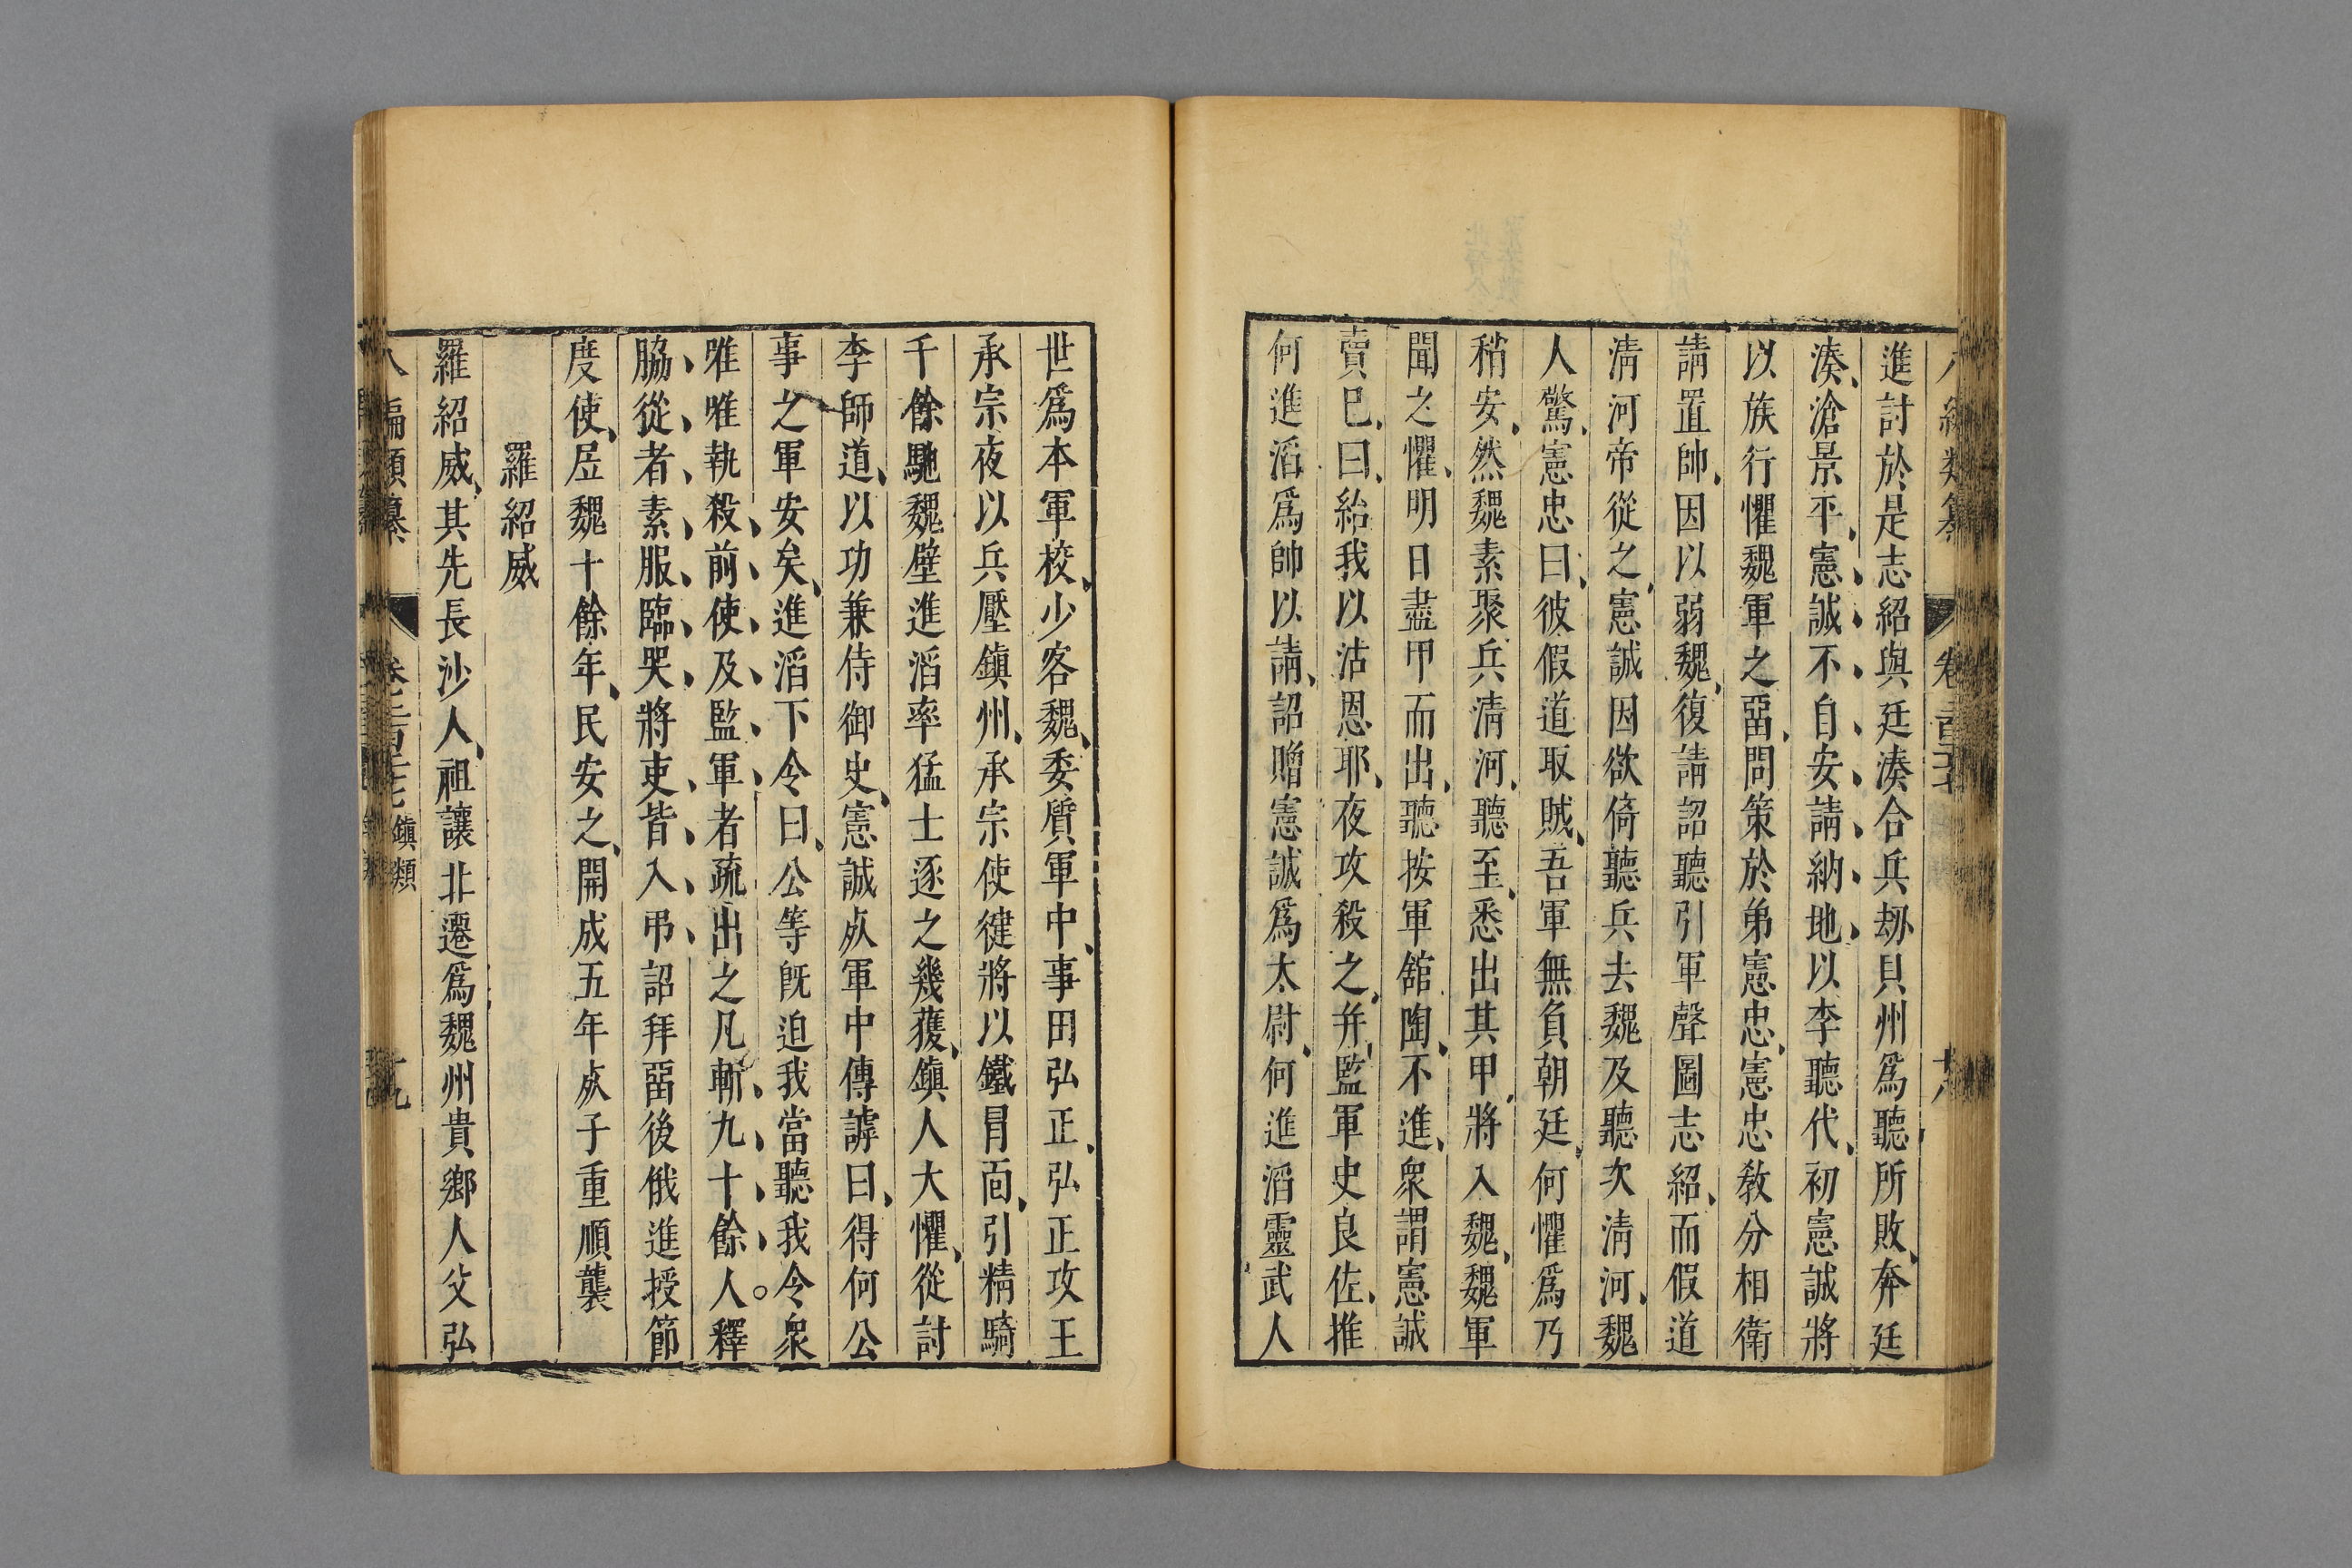 進討於是志紹與廷湊合兵刼貝州爲聽所敗奔廷
湊滄景平憲誠不自安請納地以李聽代初憲誠將
以族行懼魏軍之畱問策於弟憲忠憲忠敎分相衛
請置帥因以弱魏復請詔聽引軍聲圖志紹而假道
淸河帝從之憲誠因欲倚聽兵去魏及聽次淸河魏
人驚憲忠曰彼假道取賊吾軍無負朝廷何懼爲乃
稍安然魏素聚兵淸河聽至悉出其甲將入魏魏軍
聞之懼明日盡甲而出聽按軍館陶不進衆謂憲誠
賣巳曰紿我以沽恩耶夜攻殺之幷監軍史良佐推
何進滔爲帥以請詔贈憲誠爲太尉何進滔靈武人
世爲本軍校少客魏委質軍中事田弘正弘正攻王
承宗夜以兵壓鎭州承宗使健將以鐵冐面引精騎
千餘馳魏壁進滔率猛士逐之幾獲鎭人大懼從討
李師道以功兼侍御史憲誠死軍中傳謼曰得何公
事之軍安矣進滔下令曰公等旣迫我當聽我令衆
唯唯執殺前使及監軍者疏出之凡斬九十餘人釋
脇從者素服臨哭將吏皆入弔詔拜畱後俄進授節
度使居魏十餘年民安之開成五年死子重順襲
羅紹威
羅紹威其先長沙人祖讓北遷爲魏州貴鄉人父弘
八編類纂
鎭類
十九